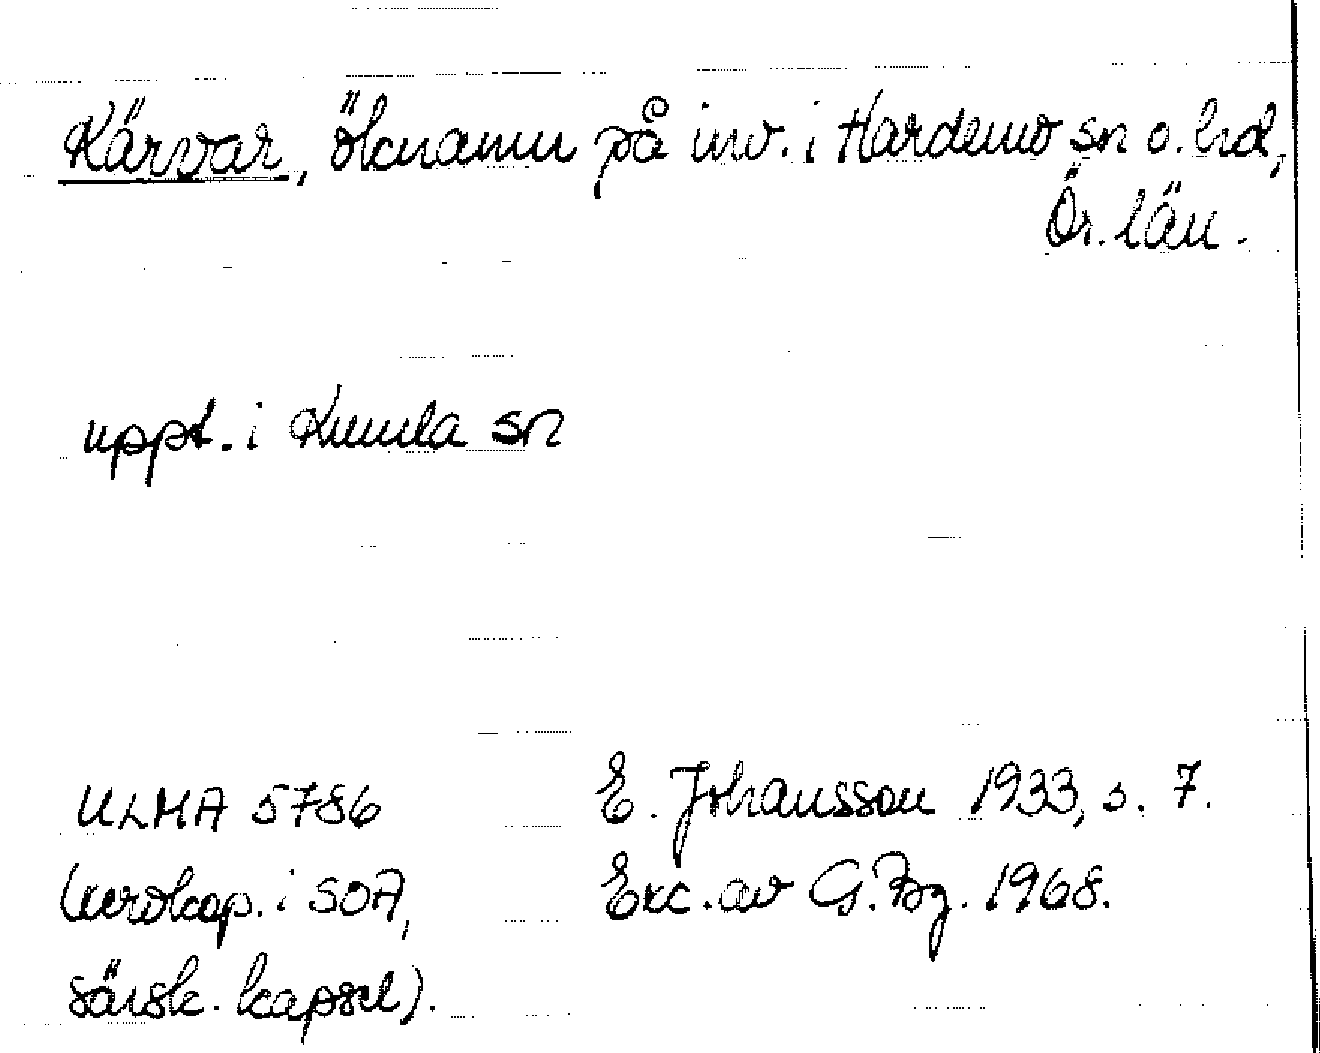 Kärvar, öknamn på inv. i Hardemo sn o. hd,
Ör. län.
uppt. i Kumla sn
ULMA 5786
(xeroxkop. i SOA,
särsk. kapsel).
E. Johansson 1933, s. 7.
Exc. av G. Bg. 1968.